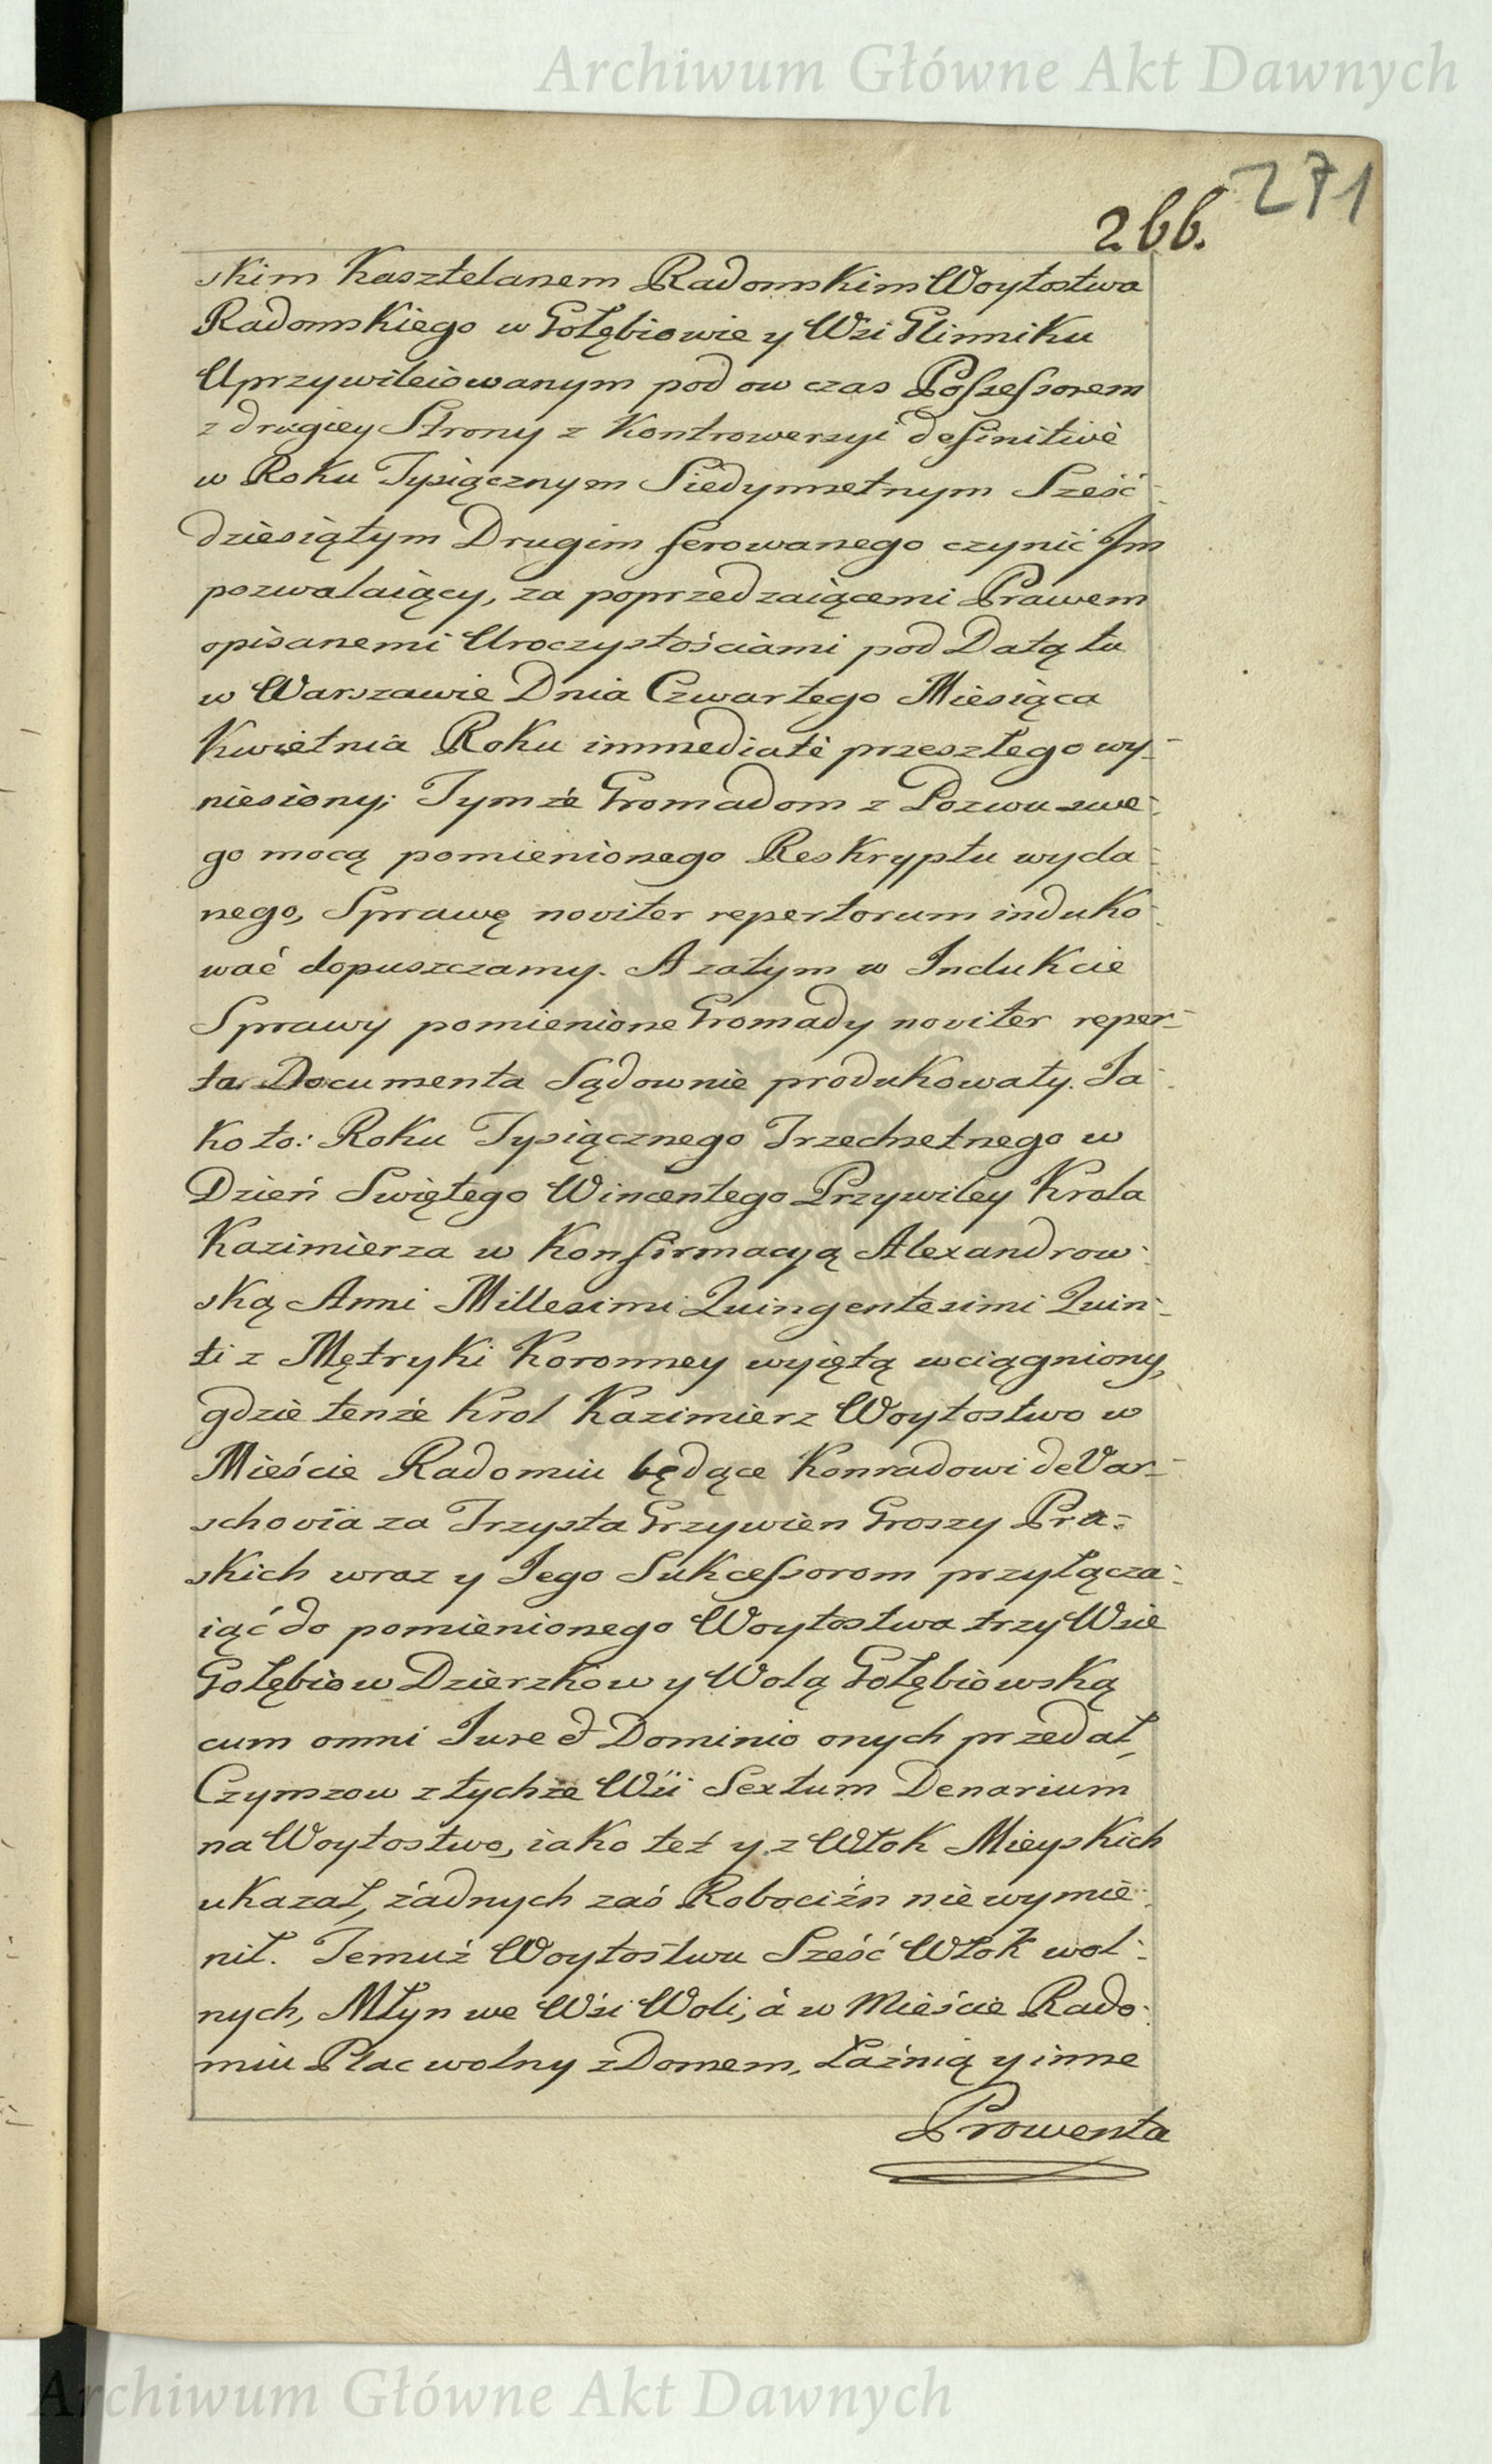 Archiwum Główne Akt Dawnych
271
266.
skim Kasztelanem Radomskim Woytostwa
Radomskiego w Gołębiowie y Wsi Glinniku
Uprzywileiowanym pod ow czas Possessorem
z drugiey Strony z Kontrowersyi definitivè
w Roku Tysiącznym Siedymsetnym Sześć-
dziesiątym Drugim ferowanego czynić Im
pozwalaiący, za poprzedzaiącemi Prawem
opisanemi Uroczystościami pod Datą tu
w Warszawie Dnia Czwartego Miesiąca
Kwietnia Roku immediatè przeszłego wy-
niesiony; Tymże Gromadom z Pozwu swe-
go mocą pomienionego Reskryptu wyda-
nego, Sprawę noviter repertorum induko-
wać dopuszczamy. A zatym w Indukcie
Sprawy pomienione Gromady noviter reper-
ta Documenta Sądownie produkowały. Ja-
ko to: Roku Tysiącznego Trzechsetnego w
Dzień Swiętego Wincentego Przywiley Krola
Kazimierza w Konfirmacyą Alexandrow-
ską Anni Millesimi Quingentesimi Quin-
ti z Mętryki Koronney wyiętą wciągniony,
gdzie tenże Krol Kazimierz Woytostwo w
Mieście Radomiu będące Konradowi de Var-
schovia za Trzysta Grzywien Groszy Pra-
skich wraz y Jego Sukcessorom przyłącza-
iąć do pomienionego Woytostwa trzy Wsie
Gołębiow Dzierzkow y Wolą Gołębiowską
cum omni Jure & Dominio onych przedał,
Czymszow z tychże Wsii Sextum Denarium
na Woytostwo, iako też y z Włok Mieyskich
ukazał, żadnych zaś Robocizn nie wymie-
nił. Temuż Woytostwu Sześć Włok wol-
nych, Młyn we Wsi Woli, à w Mieście Rado-
miu Plac wolny z Domem, Łaźnią y inne
Prowenta
Archiwum Główne Akt Dawnych